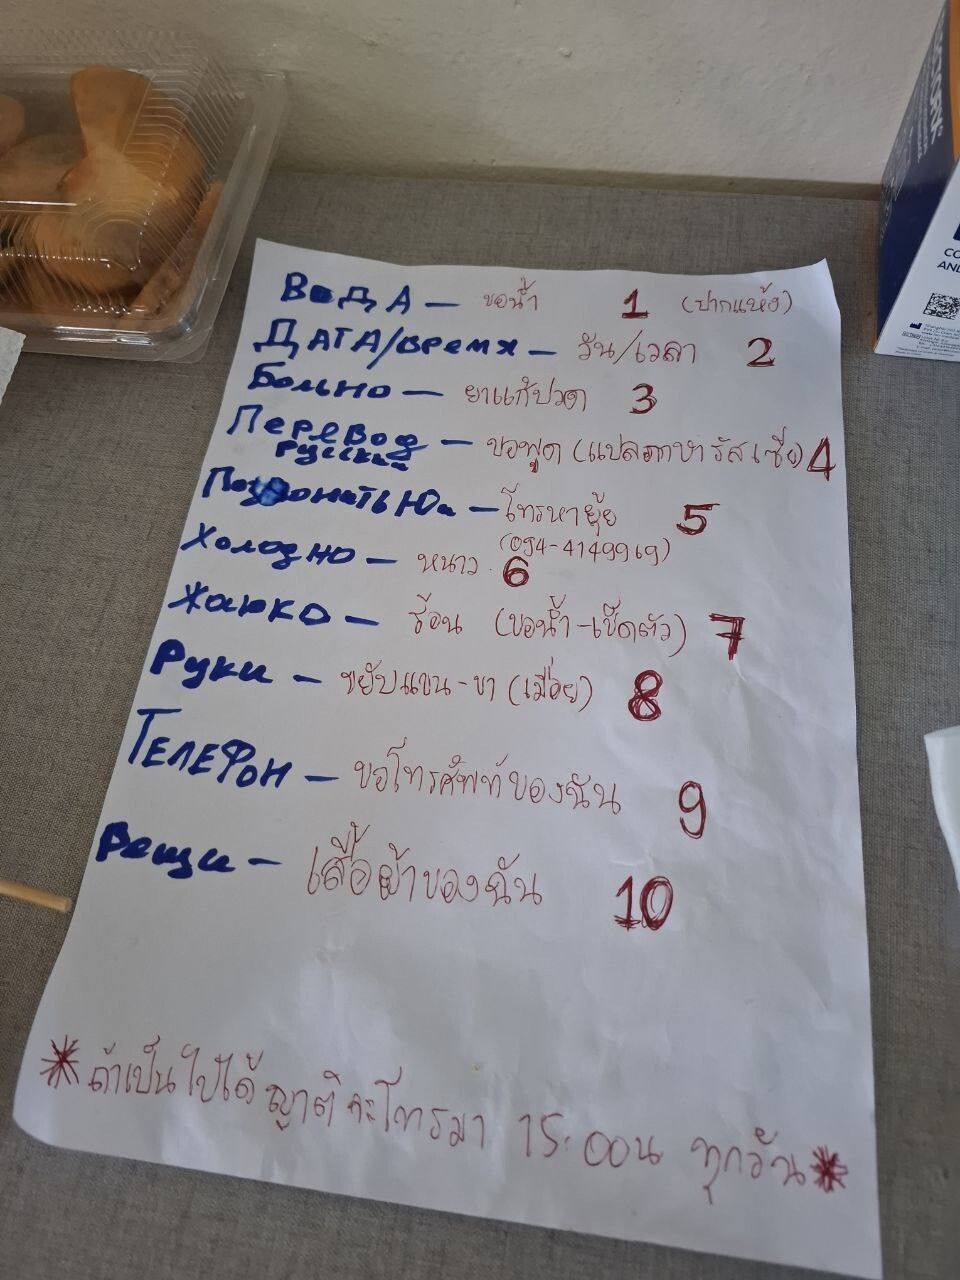 ВОДА – ขอน้ำ 1 (ปากแห้ง)
ДАТА/время – วัน/เวลา 2
Больно – ยาแก้ปวด 3
Перевод русский – ขอพูด (แปลภาษารัสเซีย) 4
Позвонить Юи – โทรหายุ้ย 5
(094-4149969)
Холодно – หนาว 6
Жарко – ร้อน (ขอน้ำ-เช็ดตัว) 7
Руки – ขยับแขน-ขา (เมื่อย) 8
ТЕЛЕФОН – ขอโทรศัพท์ของฉัน 9
Вещи – เสื้อผ้าของฉัน 10
*ถ้าเป็นไปได้ ญาติจะโทรมา 15:00น ทุกวัน*